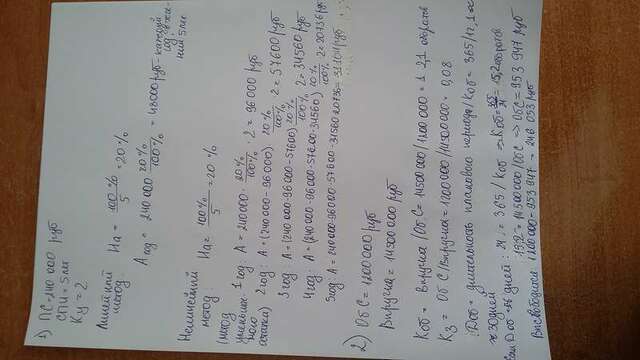 1) ПС=240 000 руб
СПИ=5 лет
Ку=2
Линейный метод:
На = 100%/5 = 20%
Агод = 240 000 · 20%/100% = 48000 руб - каждый год в течение 5 лет
Нелинейный метод:
На = 100%/5 = 20%
(метод уменьшаемого остатка)
1 год: А = 240000 · 20%/100% · 2 = 96000 руб
2 год: А = (240 000-96 000) 20%/100% · 2 = 57600 руб
3 год А = (240 000-96 000-57600) 20%/100% · 2 = 34560 руб
4 год А = (240 000-96 000-57 600-34560) 20%/100% · 2 = 20736 руб
5 год А = 240 000-96 000-57 600-34560-20736 = 31104 руб
2) ОбС = 1200 000 руб
Выручка = 14500 000 руб
Коб = Выручка / ОбС = 14500000 / 1200 000 = 12,1 оборотов
Кз = ОбС/Выручка = 1200 000/14500000 = 0,08
Доб = длительность планового периода/Коб = 365/12,1 =
≈ 30 дней
Доб = 24 дней: 24 = 365 / Коб ⇒ Коб = 365/24 = 15,2 оборотов
15,2 = 14500 000/ОбС ⇒ ОбС = 953 947 руб
Высвободилось: 1200 000-953 947 = 246 053 руб